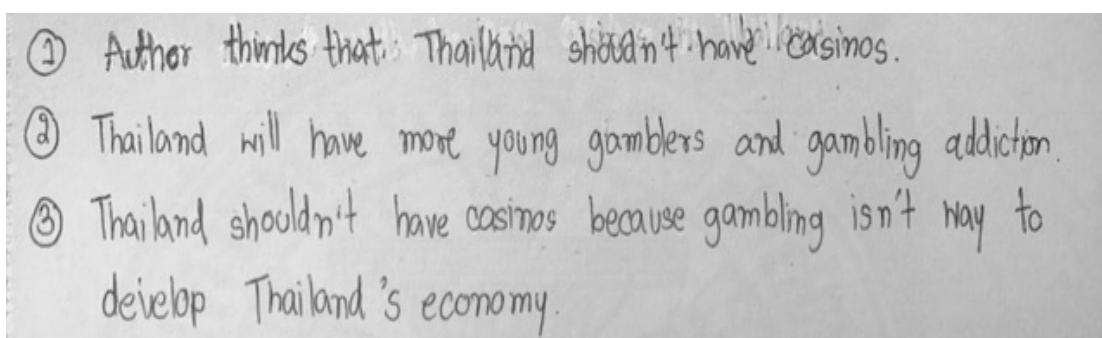 ① Author thinks that Thailand shoudn't have casinos.
② Thailand will have more young gamblers and gambling addiction.
③ Thailand shouldn't have casinos because gambling isn't way to
develop Thailand's economy.